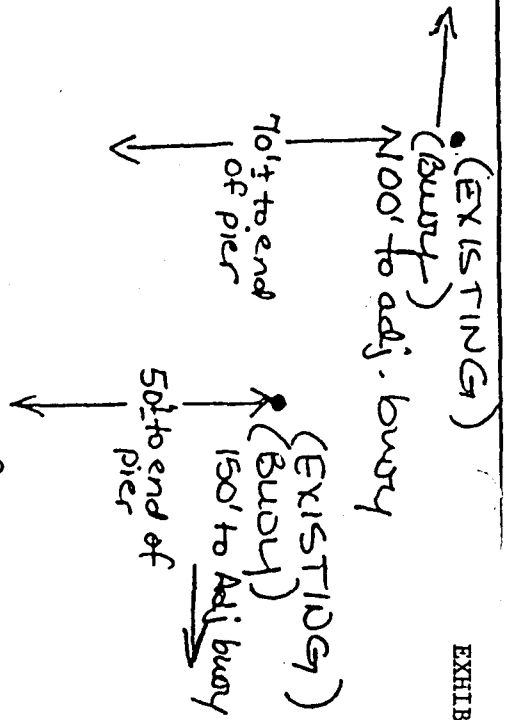 EXHIB
(EXISTING)
(Buoy)
100' to adj. buoy
70'± to end
of pier
(EXISTING)
(Buoy)
150' to Adj buoy
50'± to end of
pier